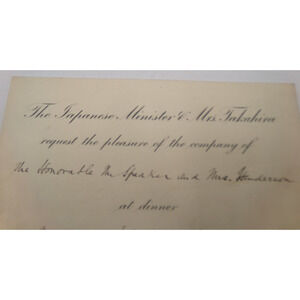 The Japanese Minister & Mrs. Takahira
request the pleasure of the company of
the Honorable the Speaker and Mrs. Henderson
at dinner